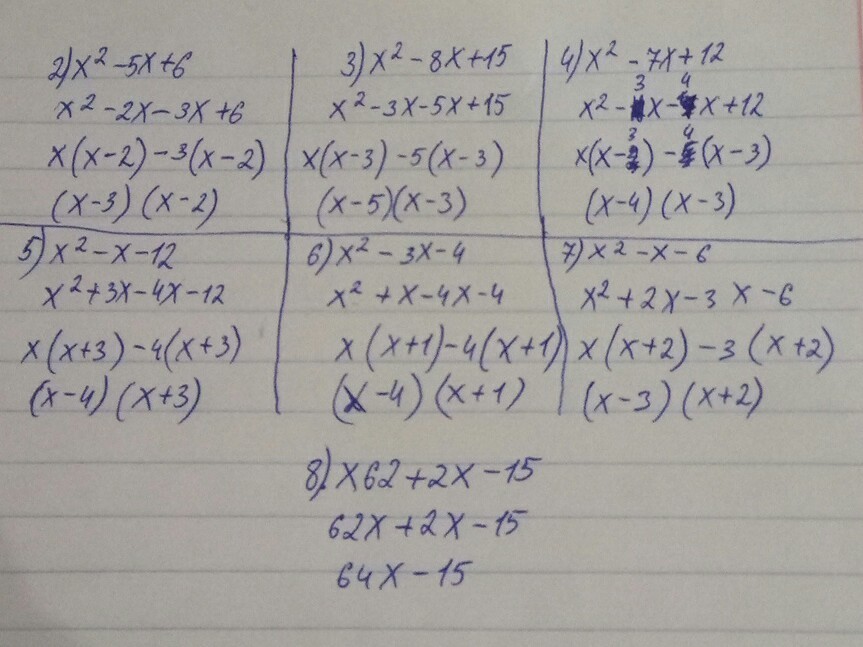 2) x² - 5x + 6
x² - 2x - 3x + 6
x(x-2) - 3(x-2)
(x-3) (x-2)
3) x² - 8x + 15
x² - 3x - 5x + 15
x(x-3) - 5(x-3)
(x-5)(x-3)
4) x² - 7x + 12
x² - 3x - 4x + 12
x(x-3) - 4(x-3)
(x-4) (x-3)
5) x² - x - 12
x² + 3x - 4x - 12
x(x+3) - 4(x+3)
(x-4) (x+3)
6) x² - 3x - 4
x² + x - 4x - 4
x(x+1) - 4(x+1)
(x-4) (x+1)
7) x² - x - 6
x² + 2x - 3x - 6
x(x+2) - 3(x+2)
(x-3) (x+2)
8) x62 + 2x - 15
62x + 2x - 15
64x - 15